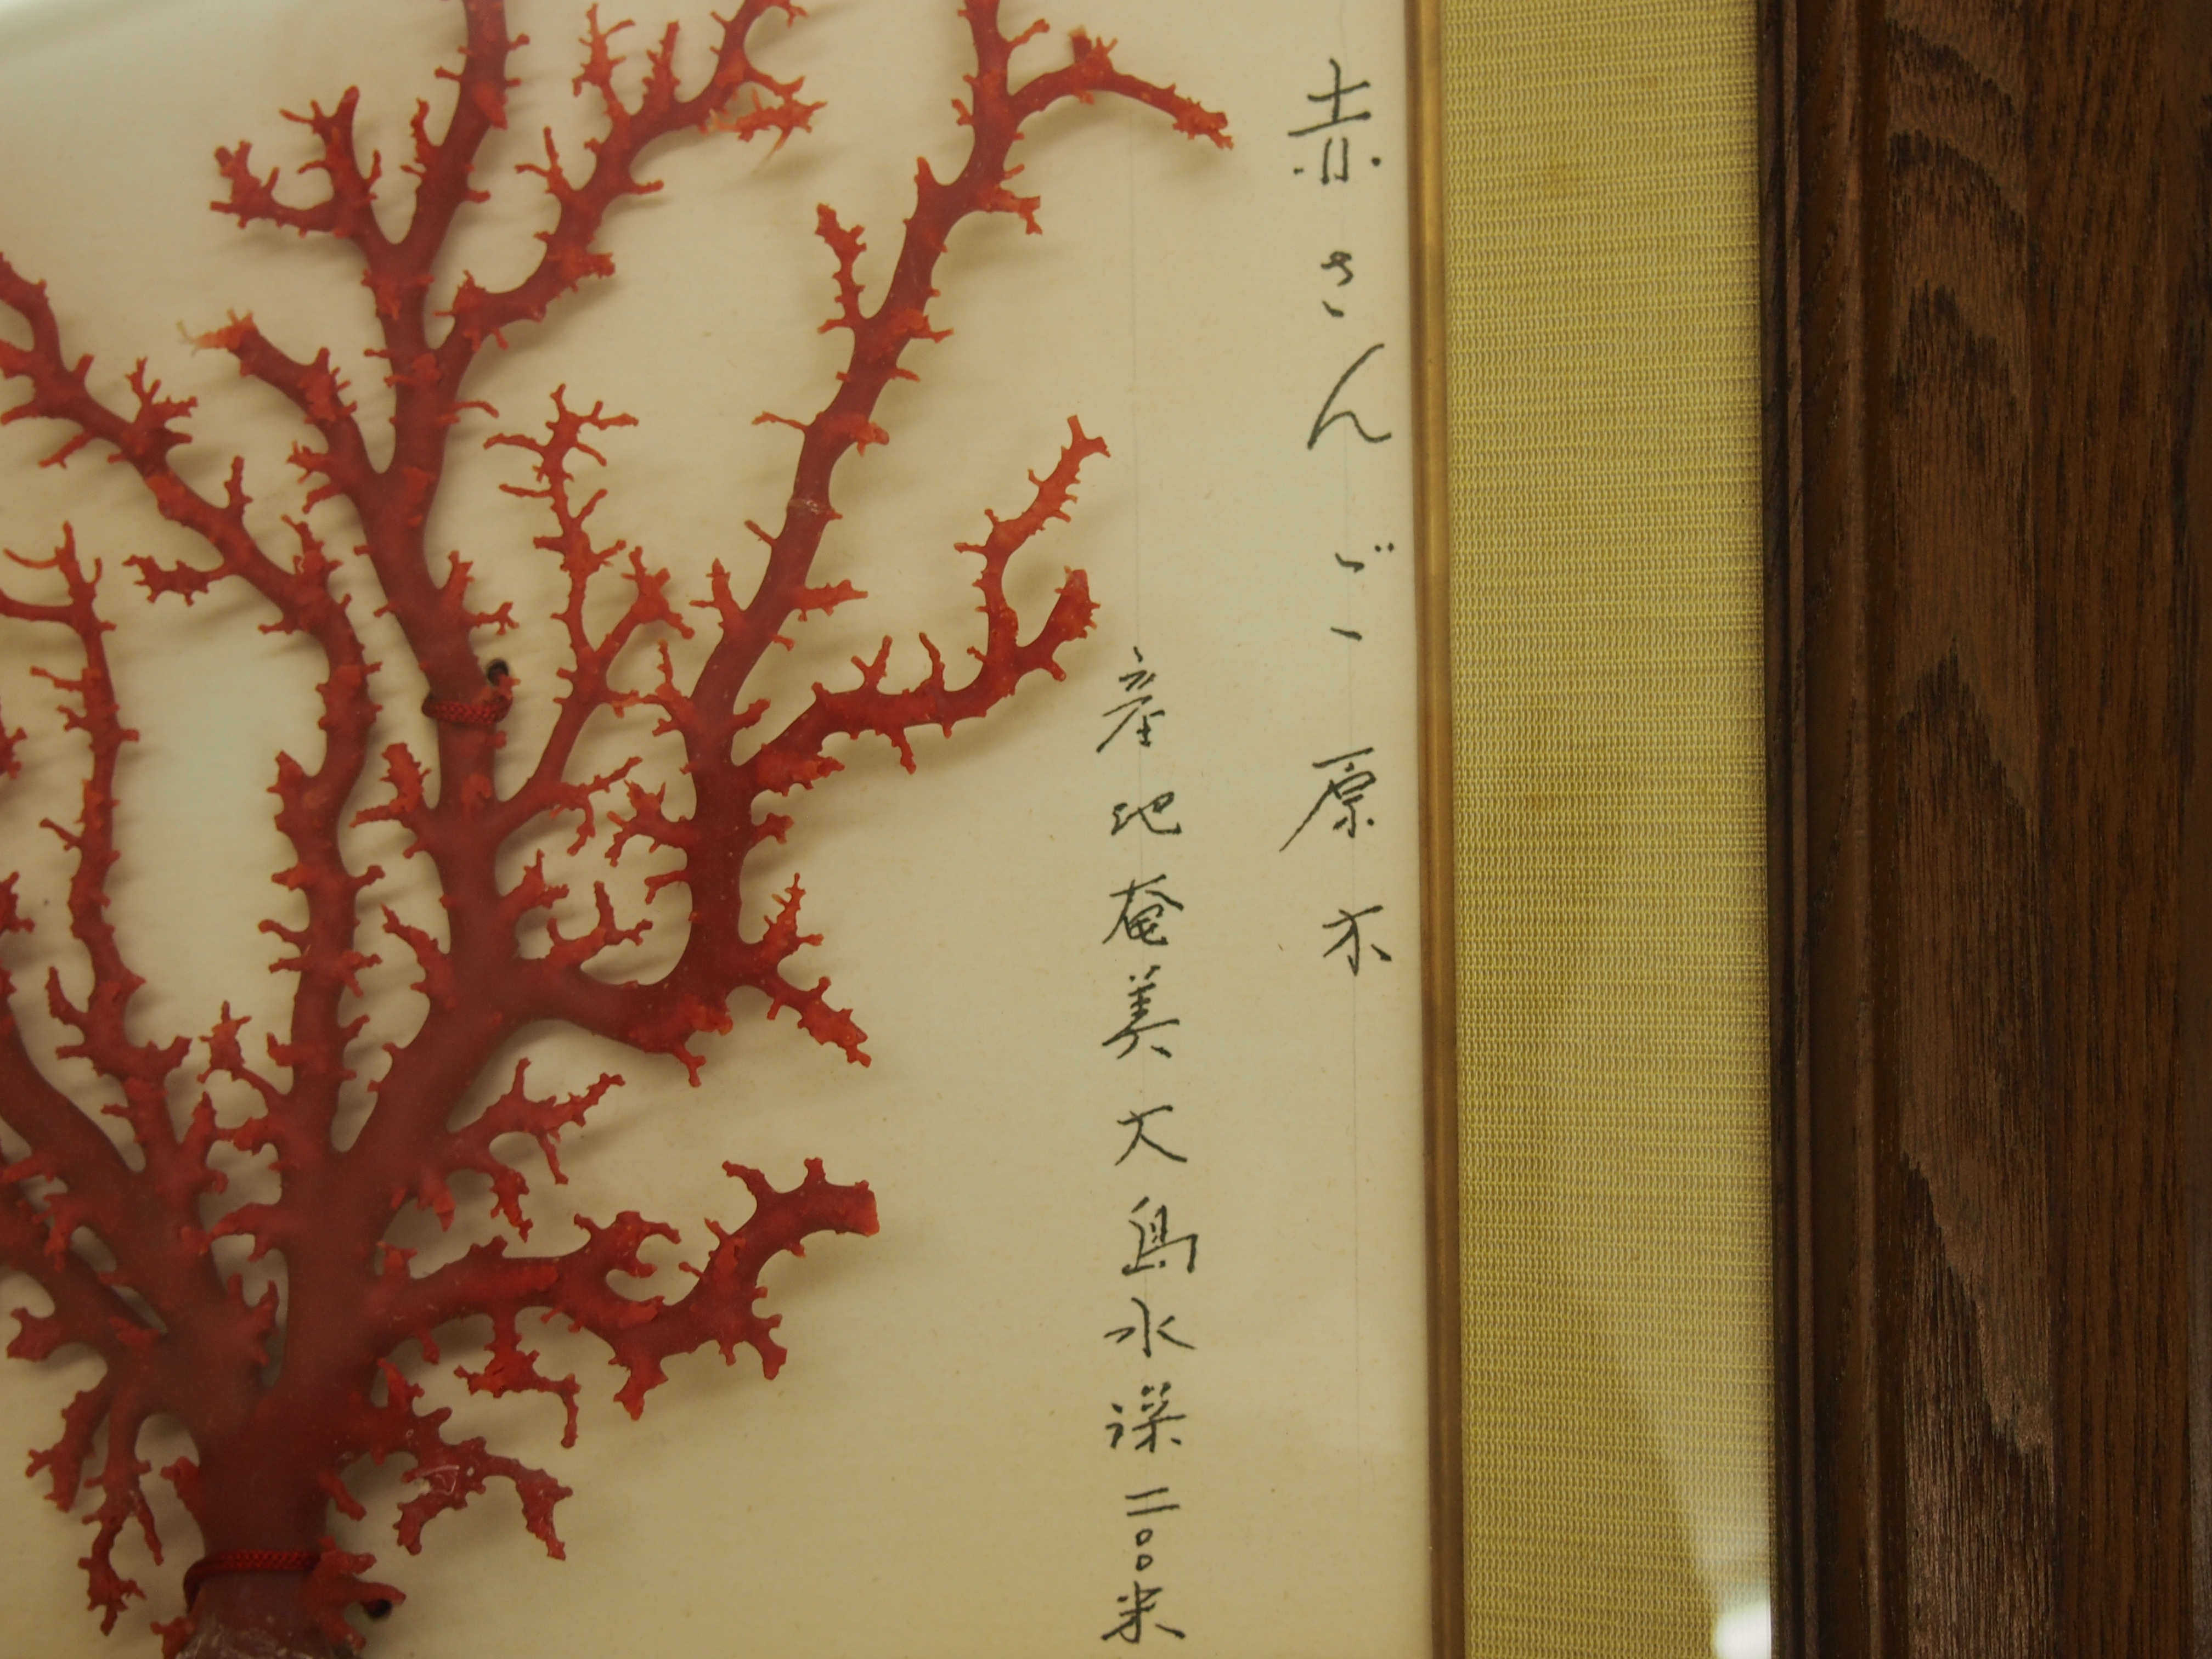 赤さんご原木
産地奄美大島水深二〇〇米